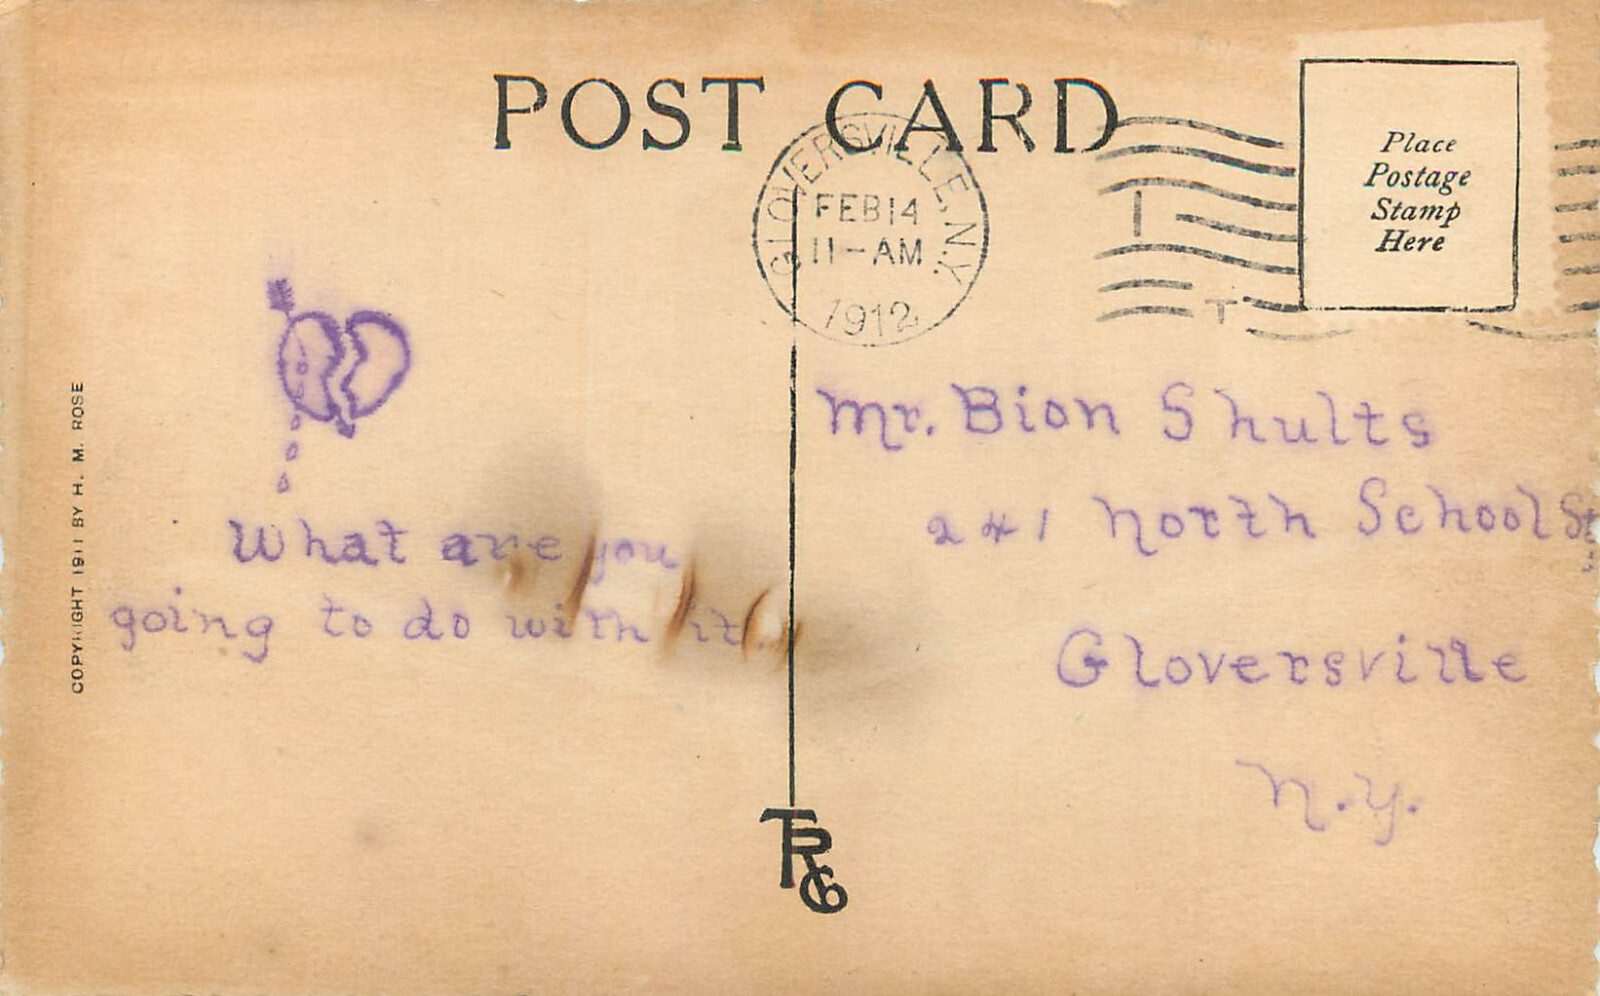 POST CARD
GLOVERSVILLE, N.Y.
FEB 14
11-AM
1912
Place
Postage
Stamp
Here
COPYRIGHT 1911 BY H. M. ROSE
What are you
going to do with it.
Mr. Bion Shults
241 North School St.
Gloversville
N.Y.